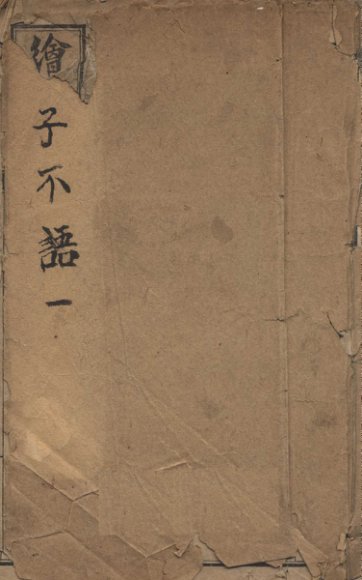 繪
子不語一